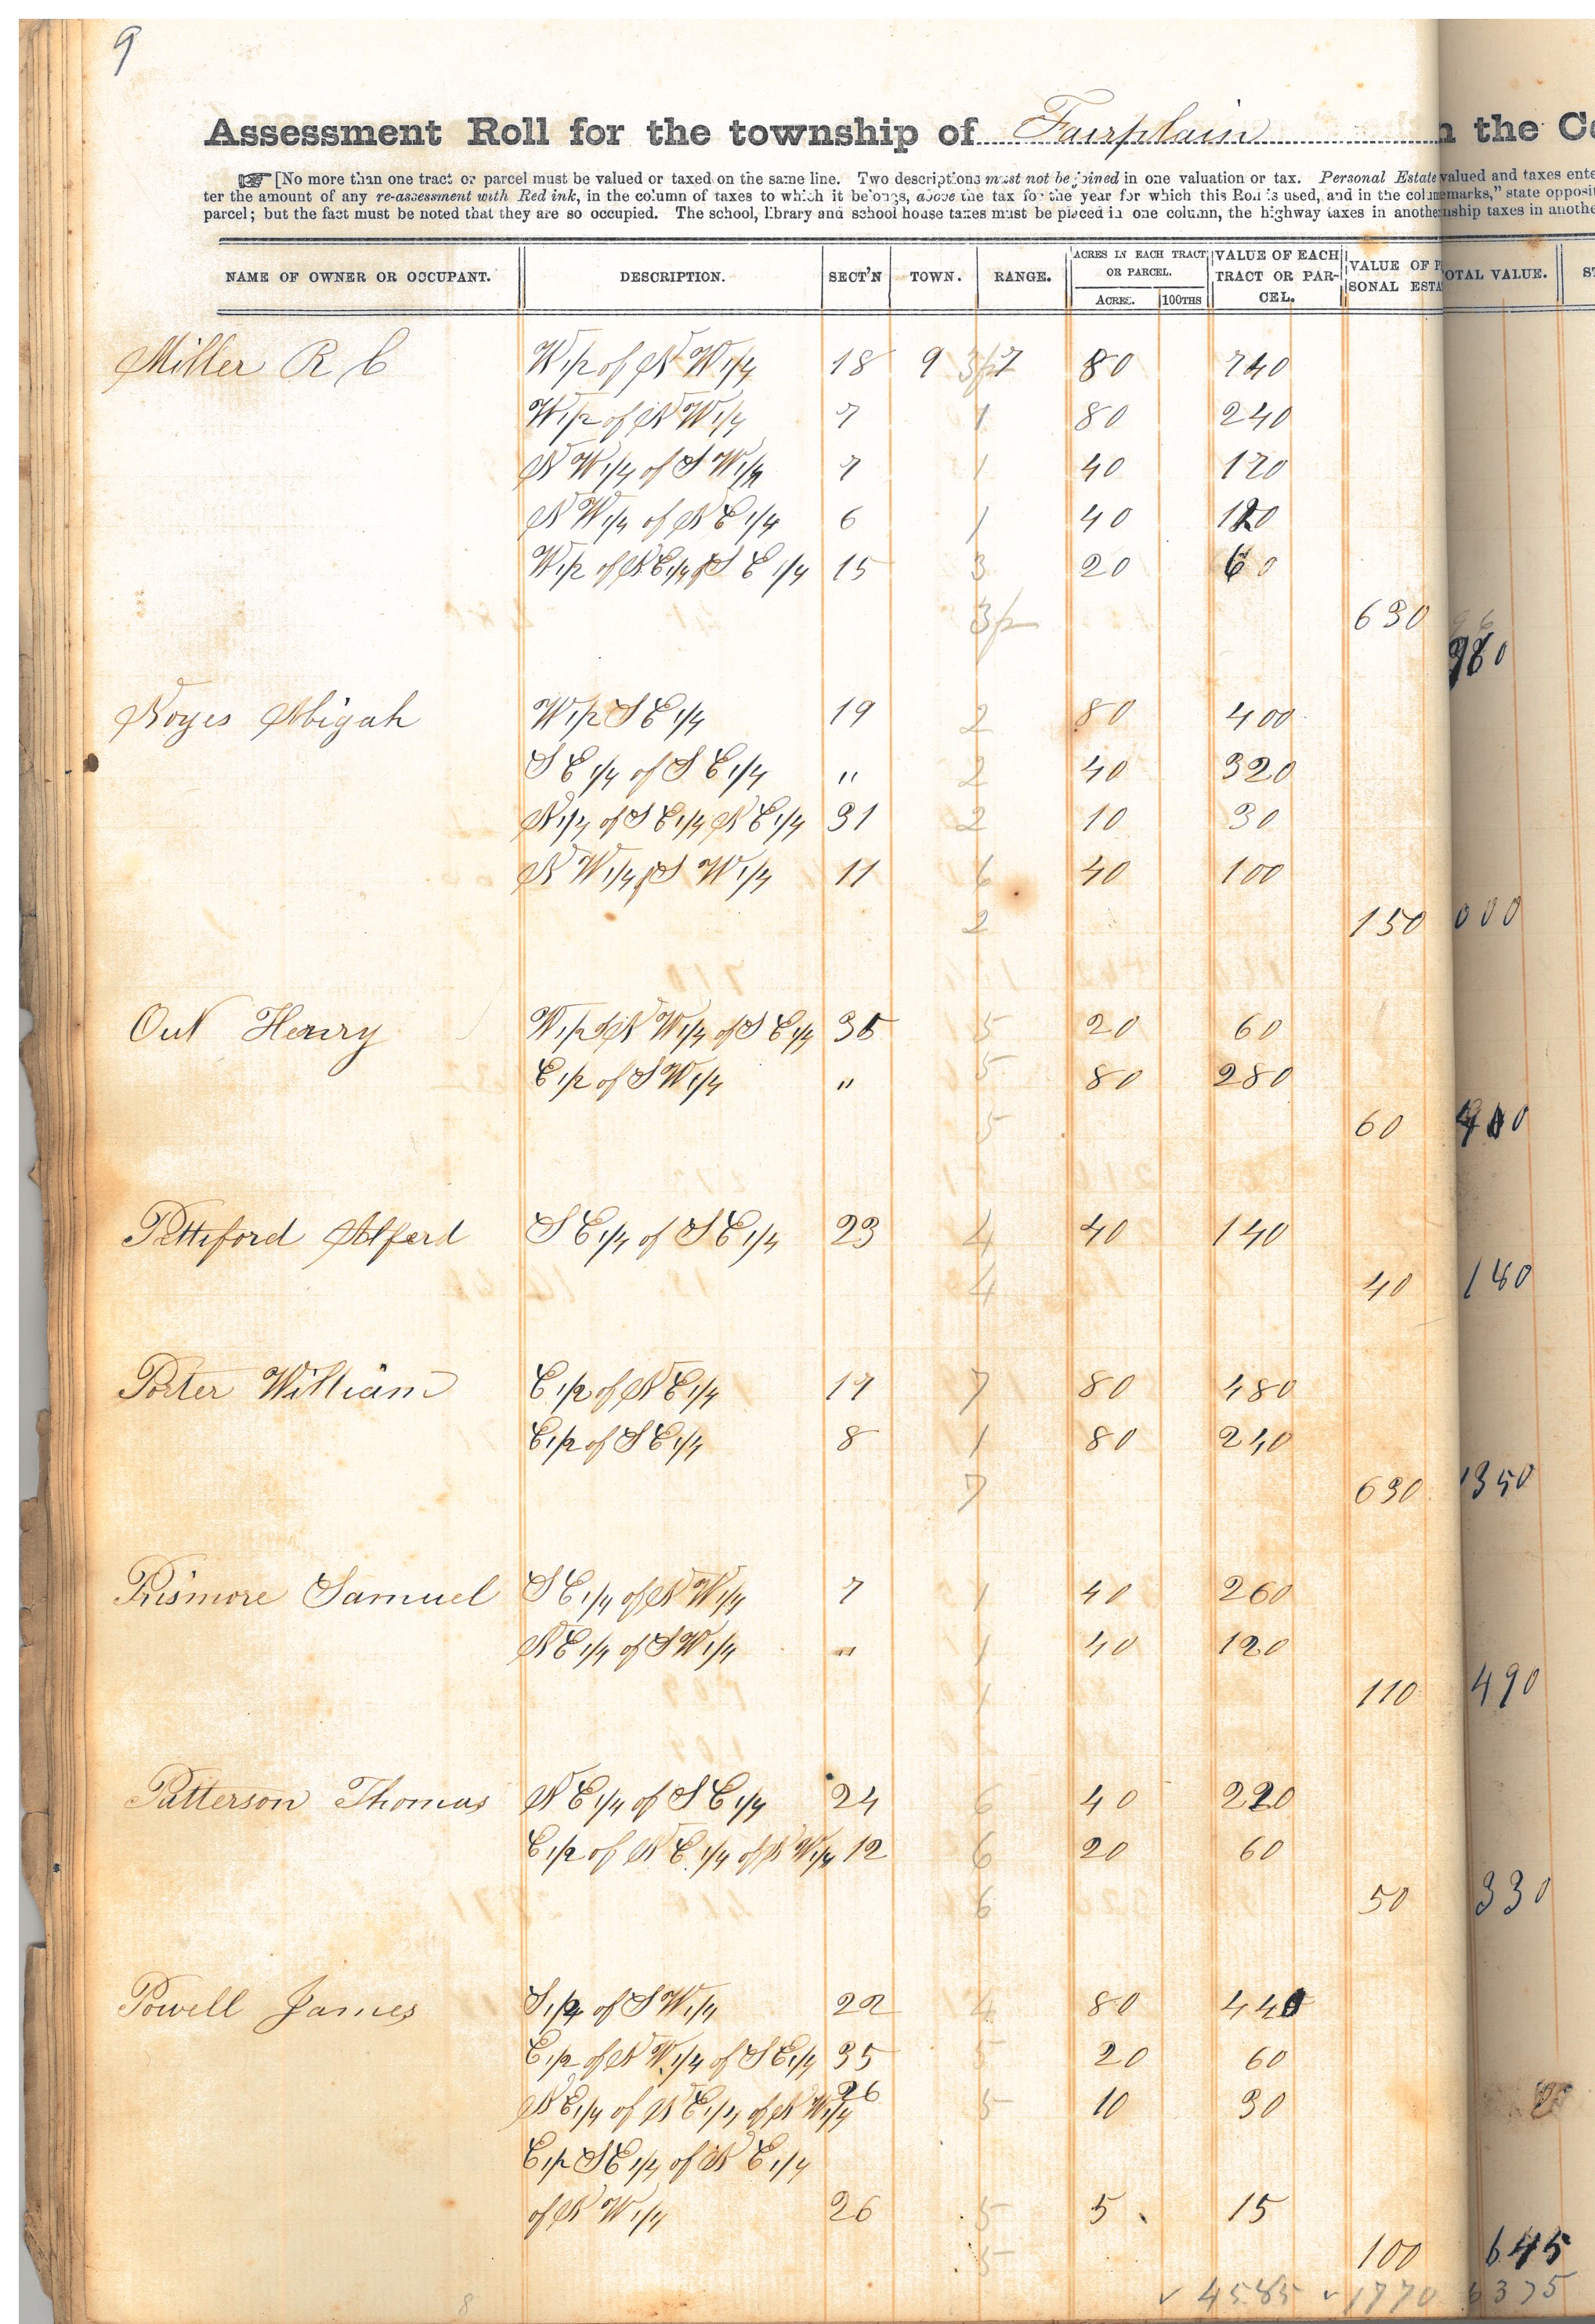 9
Assessment Roll for the township of Fairplain n the Co
[No more than one tract or parcel must be valued or taxed on the same line. Two descriptions must not be joined in one valuation or tax. Personal Estate valued and taxes ente
ter the amount of any re-assessment with Red ink, in the column of taxes to which it belongs, above the tax for the year for which this Roll is used, and in the colum emarks," state opposit
parcel; but the fact must be noted that they are so occupied. The school, library and school house taxes must be placed in one column, the highway taxes in another nship taxes in anothe
NAME OF OWNER OR OCCUPANT. DESCRIPTION. SECT'N TOWN. RANGE. ACRES IN EACH TRACT OR PARCEL. ACRES. 100THS VALUE OF EACH TRACT OR PAR-CEL. VALUE OF P SONAL ESTA OTAL VALUE. ST
Miller R C W 1/2 of N W 1/4 18 9 7 80 740
W 1/2 of N W 1/4 7 1 80 240
N W 1/4 of S W 1/4 7 1 40 120
N W 1/4 of N E 1/4 6 1 40 120
W 1/2 of N E 1/4 of S E 1/4 15 3 20 60
3/2 630
Noyes Abigah W 1/2 S E 1/4 19 2 80 400
S E 1/4 of S E 1/4 " 2 40 320
N 1/4 of S E 1/4 N E 1/4 31 2 10 30
N W 1/4 of S W 1/4 11 6 40 100
2 150 000
Out Henry W 1/2 of N W 1/4 of S E 1/4 35 5 20 60
E 1/2 of S W 1/4 " 5 80 280
5 60
Pettiford Alferd S E 1/4 of S E 1/4 23 4 40 140
4 40 180
Porter William E 1/2 of N E 1/4 17 7 80 480
E 1/2 of S E 1/4 8 1 80 240
7 630 1350
Prismore Samuel S E 1/4 of N W 1/4 7 1 40 260
N E 1/4 of S W 1/4 " 1 40 120
1 110 490
Patterson Thomas N E 1/4 of S E 1/4 24 6 40 220
E 1/2 of N E 1/4 of N W 1/4 12 6 20 60
6 50 330
Powell James S 1/2 of S W 1/4 22 4 80 440
E 1/2 of N W 1/4 of S E 1/4 35 5 20 60
N E 1/4 of N E 1/4 of N W 1/4 26 5 10 30
E 1/2 S E 1/4 of N E 1/4
of N W 1/4 26 5 5 15
5 100 645
4585 1770 6375
8